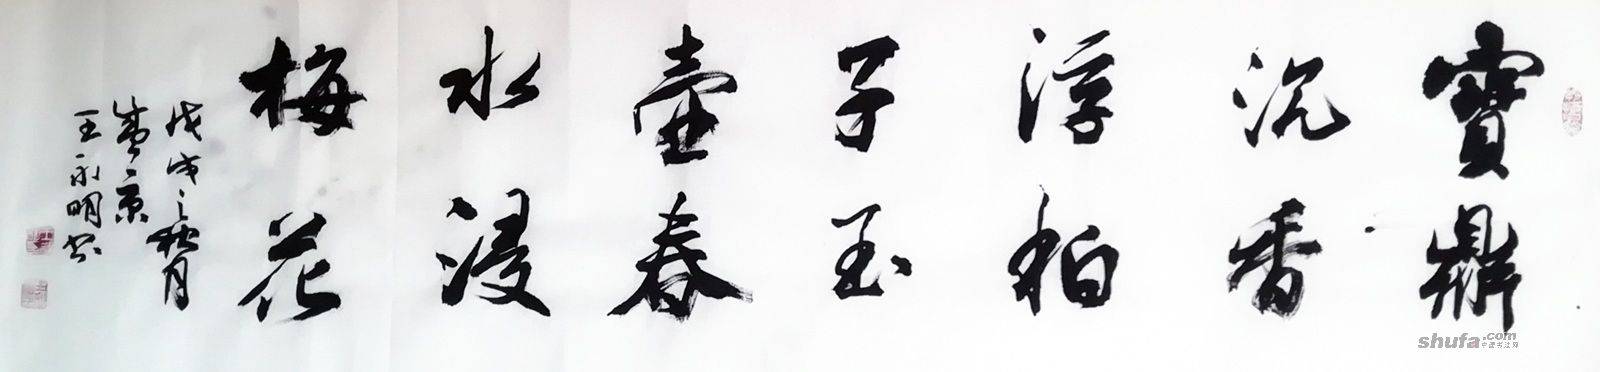 寶鼎
沉香
浮柏
子玉
壺春
水浸
梅花
戊戌之秋月
京
王永明书
shufa.com
中国书法网